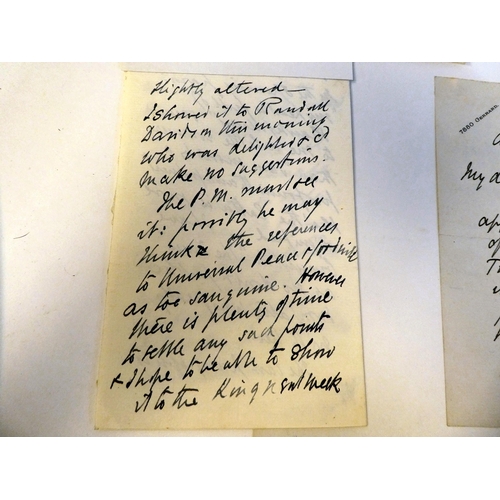 slightly altered —
I showed it to Randall
Davidson this morning
who was delighted & cd
make no suggestions.
The P.M. must see
it: possibly he may
think the references
to Universal Peace & goodwill
as too sanguine. However
there is plenty of time
to settle any such points
& I hope to be able to show
it to the King next week
My d
ap
T